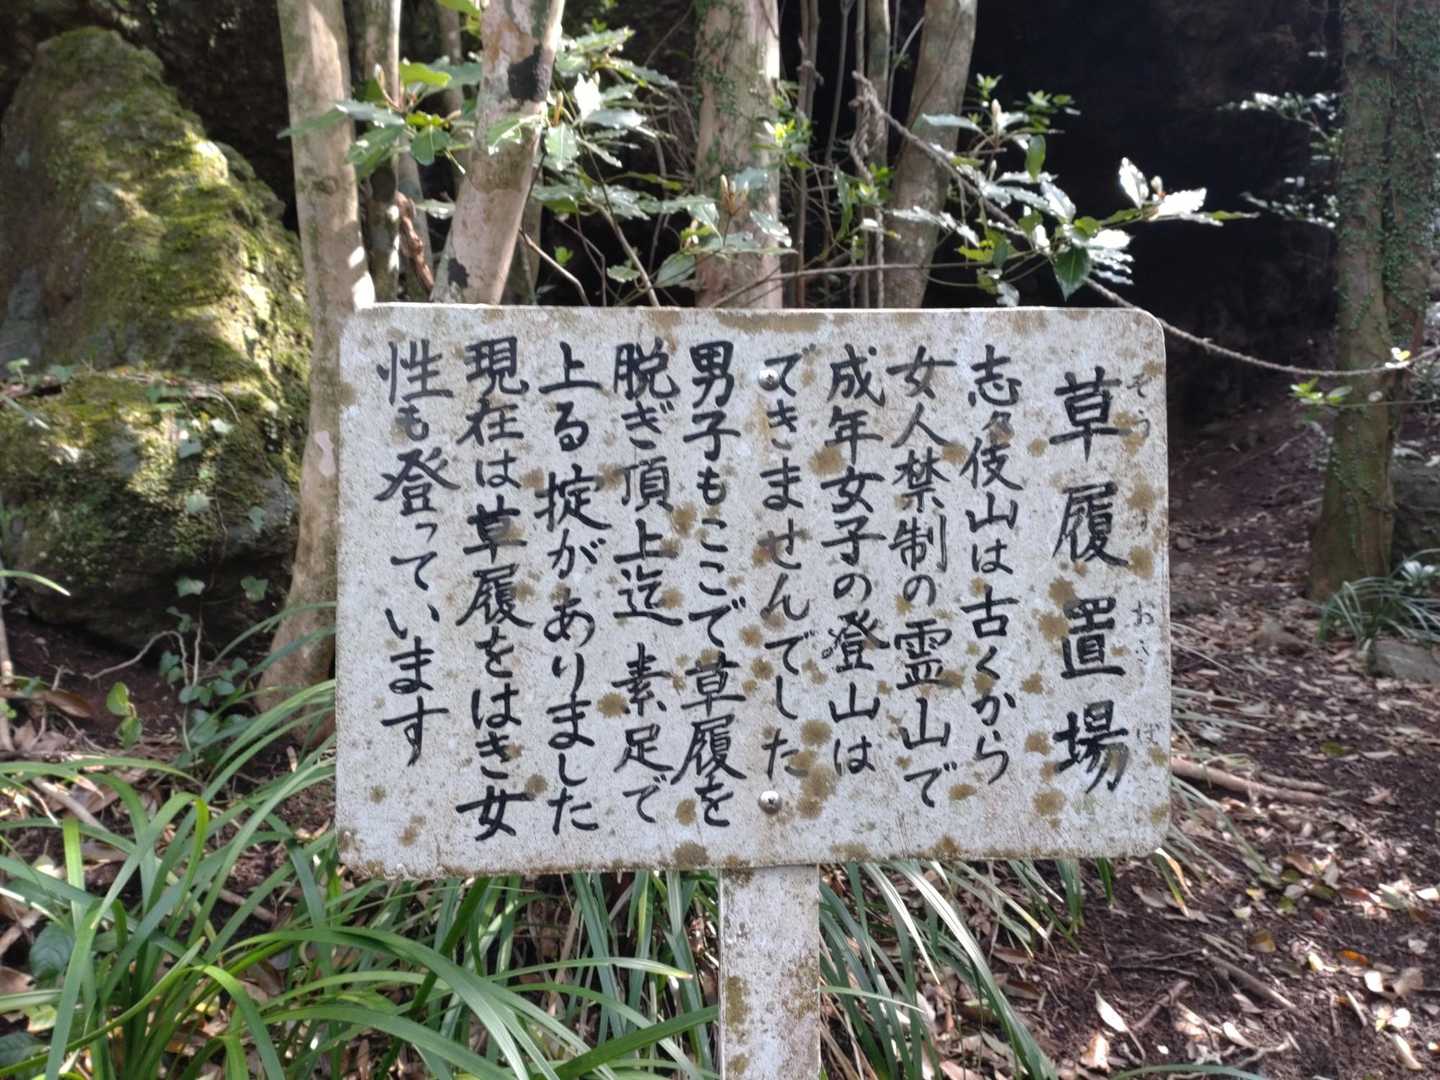 草履置場
ぞうりおきば
志々伎山は古くから
女人禁制の霊山で
成年女子の登山は
できませんでした
男子もここで草履を
脱ぎ頂上迄 素足で
上る掟がありました
現在は草履をはき女
性も登っています